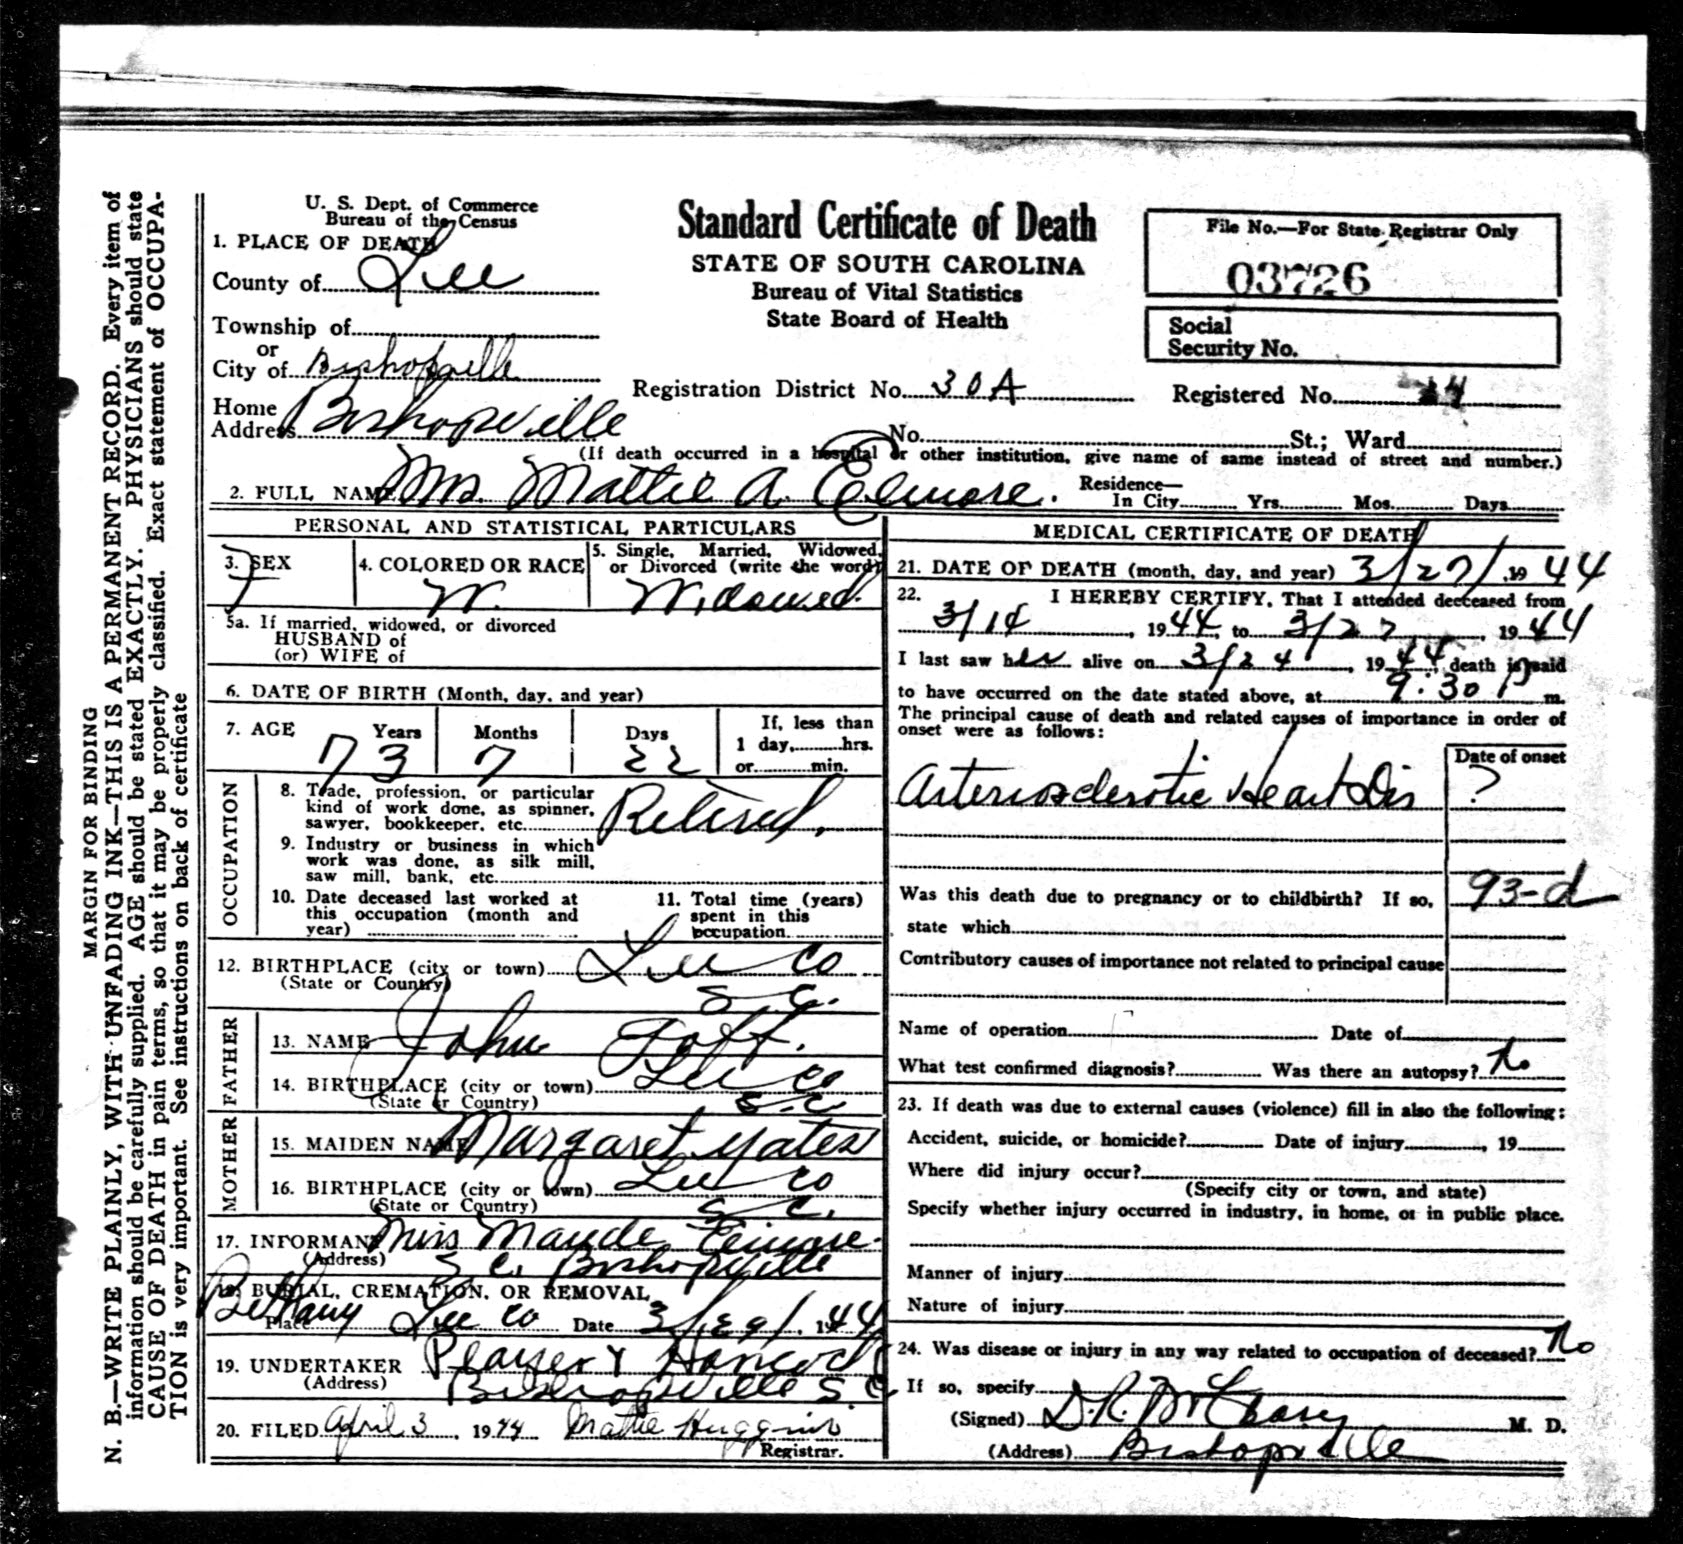 N. B.—WRITE PLAINLY, WITH UNFADING INK—THIS IS A PERMANENT RECORD. Every item of
information should be carefully supplied. AGE should be stated EXACTLY. PHYSICIANS should state
CAUSE OF DEATH in pain terms, so that it may be properly classified. Exact statement of OCCUPA-
TION is very important. See instructions on back of certificate
MARGIN FOR BINDING
U. S. Dept. of Commerce
Bureau of the Census
Standard Certificate of Death
STATE OF SOUTH CAROLINA
Bureau of Vital Statistics
State Board of Health
File No.—For State Registrar Only
03726
Social
Security No.
1. PLACE OF DEATH
County of Lee
Township of
or
City of Bishopville
Registration District No. 30A
Registered No. 14
Home
Address Bishopville
No. St.; Ward
(If death occurred in a hospital or other institution, give name of same instead of street and number.)
2. FULL NAME Mrs. Mattie A. Elmore.
Residence—
In City Yrs. Mos. Days
PERSONAL AND STATISTICAL PARTICULARS
3. SEX F
4. COLORED OR RACE W.
5. Single, Married, Widowed,
or Divorced (write the word)
Widowed.
5a. If married, widowed, or divorced
HUSBAND of
(or) WIFE of
6. DATE OF BIRTH (Month, day, and year)
7. AGE Years Months Days
73 7 22
If, less than
1 day, hrs.
or min.
OCCUPATION
8. Trade, profession, or particular
kind of work done, as spinner,
sawyer, bookkeeper, etc. Retired.
9. Industry or business in which
work was done, as silk mill,
saw mill, bank, etc.
10. Date deceased last worked at
this occupation (month and
year)
11. Total time (years)
spent in this
occupation
12. BIRTHPLACE (city or town) Lee Co
(State or Country) S. C.
FATHER
13. NAME John Goff.
14. BIRTHPLACE (city or town) Lee Co
(State or Country) S. C
MOTHER
15. MAIDEN NAME Margaret Yates
16. BIRTHPLACE (city or town) Lee Co
(State or Country) S. C.
17. INFORMANT Miss Maude Elmore.
(Address) S C. Bishopville
18. BURIAL, CREMATION, OR REMOVAL
Place Bethany Lee Co Date 3/29/, 1944
19. UNDERTAKER Player & Hancock
(Address) Bishopville S. C.
20. FILED April 3, 1944 Mattie Huggins
Registrar.
MEDICAL CERTIFICATE OF DEATH
21. DATE OF DEATH (month, day, and year) 3/27/, 1944
22. I HEREBY CERTIFY, That I attended deceased from
3/14, 1944, to 3/27, 1944
I last saw her alive on 3/24, 1944, death is said
to have occurred on the date stated above, at 9:30 P m.
The principal cause of death and related causes of importance in order of
onset were as follows:
Date of onset
Arteriosclerotic Heart Dis ?
93-d
Was this death due to pregnancy or to childbirth? If so,
state which
Contributory causes of importance not related to principal cause
Name of operation Date of
What test confirmed diagnosis? Was there an autopsy? No
23. If death was due to external causes (violence) fill in also the following:
Accident, suicide, or homicide? Date of injury, 19
Where did injury occur?
(Specify city or town, and state)
Specify whether injury occurred in industry, in home, or in public place.
Manner of injury
Nature of injury
24. Was disease or injury in any way related to occupation of deceased? No
If so, specify
(Signed) D. R. M. D.
(Address) Bishopville